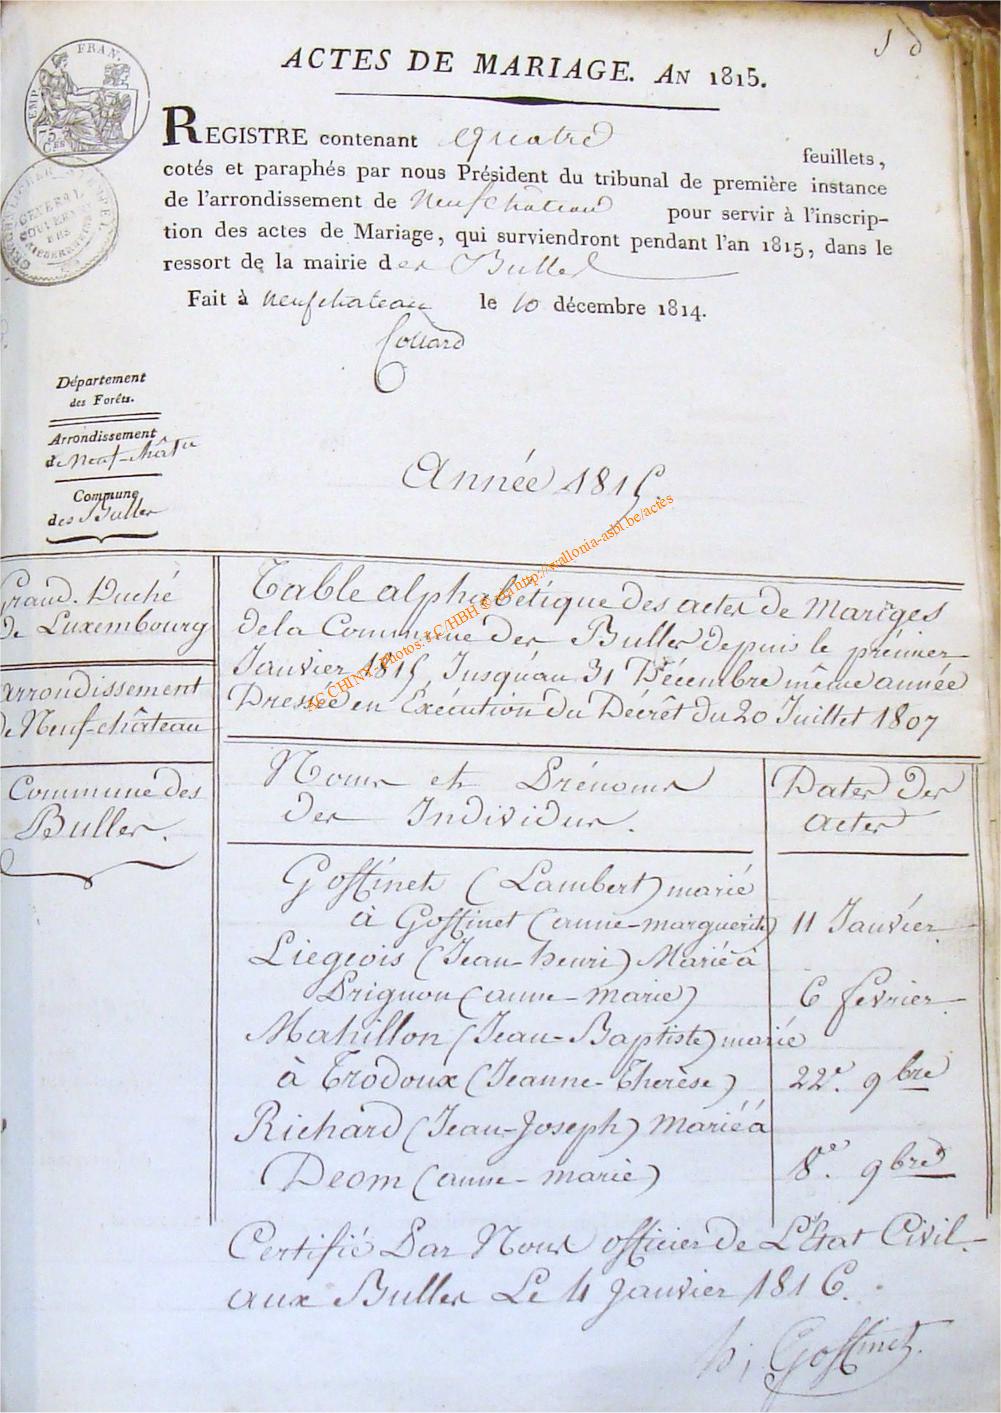 1 d
ACTES DE MARIAGE. AN 1815.
EMP. FRAN.
75 Ces
REGISTRE contenant Quatre feuillets,
cotés et paraphés par nous Président du tribunal de première instance
de l'arrondissement de Neufchateau pour servir à l'inscrip-
tion des actes de Mariage, qui surviendront pendant l'an 1815, dans le
ressort de la mairie des Bulles
Fait à neufchateau le 10 décembre 1814.
Collard
Département
des Forêts.
Arrondissement
de Neuf-chât
Commune
des Bulles
Année 1815.
AG CHINY-Photos: J-C/HBH © sur http://wallonia-asbl.be/actes
Grand. Duché
De Luxembourg
Arrondissement
de Neuf-château
Commune des
Bulles.
Table alphabétique des actes de Mariges
de la Commune des Bulles depuis le prémier
Janvier 1815, Jusqu'au 31 Décembre même année
Dressée en Exécution du Décrêt du 20 Juillet 1807
Noms et Prénoms
des Individus.
Dates des
actes
Goffinet (Lambert) marié
à Goffinet (anne-marguerite) 11 Janviér
Liegeois (Jean-henri) Marié à
Prignon (anne-marie) 6 fevrier
Mahillon (Jean-Baptiste) marié
à Trodoux (Jeanne-Therèse) 22e. 9bre
Richard (Jean-Joseph) Marié à
Deom (anne-marie) 8e. 9bre
Certifié Par Nous officier de L'Etat Civil
aux Bulles Le 4 Janvier 1816.
h; Goffinet.